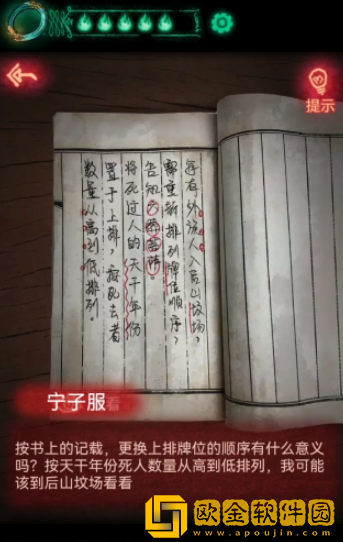 提示
有外族人入后山坟场,
需重新排列牌位顺序,
告知
将死过人的天干年份
置于上排,按死去者
数量从高到低排列。
宁子服
按书上的记载,更换上排牌位的顺序有什么意义
吗?按天干年份死人数量从高到低排列,我可能
该到后山坟场看看
欧金软件园
www.apoujin.com